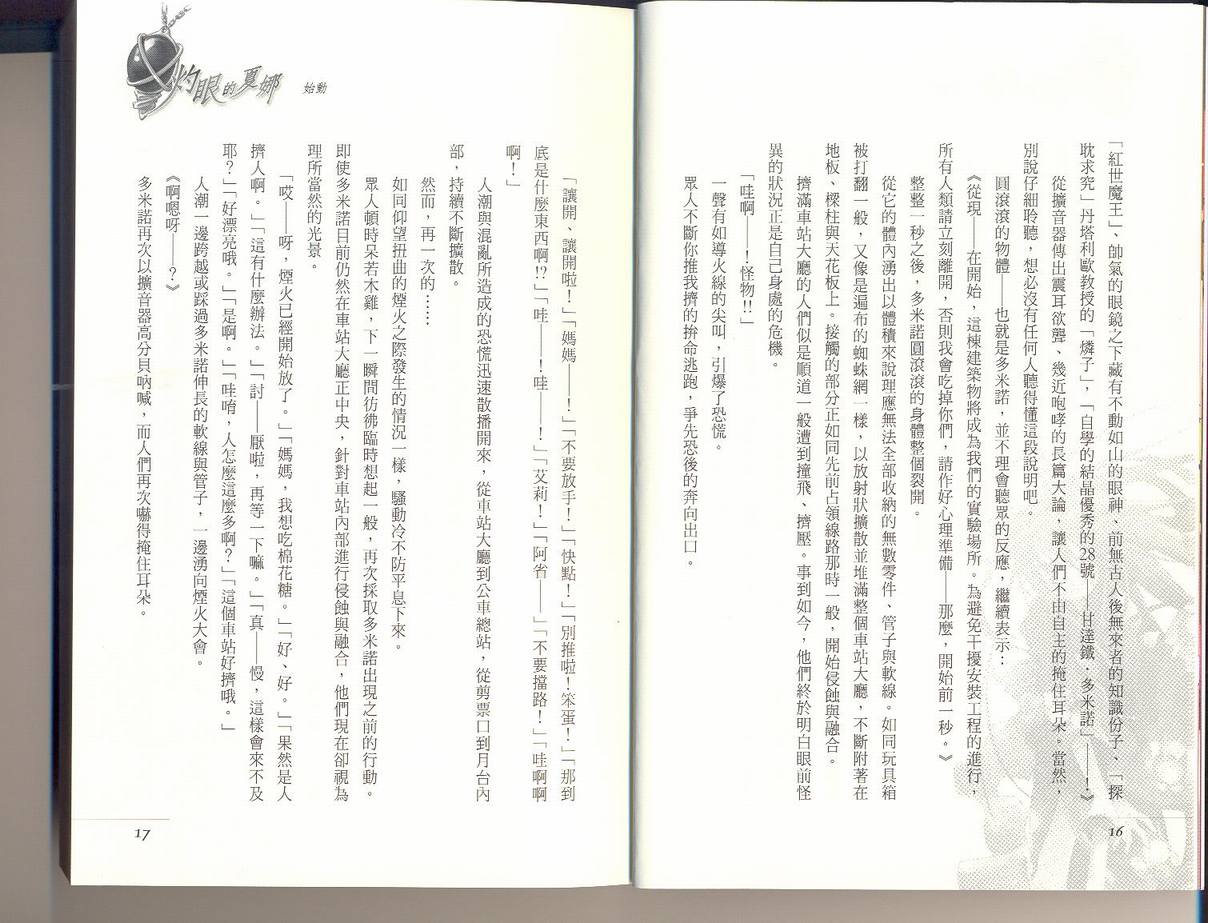 「紅世魔王」、帥氣的眼鏡之下藏有不動如山的眼神、前無古人後無來者的知識份子、「探
耽求究」丹塔利歐教授的「燐子」，「自學的結晶優秀的28號——甘達鐵・多米諾」——！》
從擴音器傳出震耳欲聾、幾近咆哮的長篇大論，讓人們不由自主的掩住耳朵。當然，
別說仔細聆聽，想必沒有任何人聽得懂這段說明吧。
圓滾滾的物體——也就是多米諾，並不理會聽眾的反應，繼續表示：
《從現——在開始，這棟建築物將成為我們的實驗場所。為避免干擾安裝工程的進行，
所有人類請立刻離開，否則我會吃掉你們，請作好心理準備——那麼，開始前一秒。》
整整一秒之後，多米諾圓滾滾的身體整個裂開。
從它的體內湧出以體積來說理應無法全部收納的無數零件、管子與軟線。如同玩具箱
被打翻一般，又像是遍布的蜘蛛網一樣，以放射狀擴散並堆滿整個車站大廳，不斷附著在
地板、樑柱與天花板上。接觸的部分正如同先前占領線路那時一般，開始侵蝕與融合。
擠滿車站大廳的人們似是順道一般遭到撞飛、擠壓。事到如今，他們終於明白眼前怪
異的狀況正是自己身處的危機。
「哇啊——！怪物!!」
一聲有如導火線的尖叫，引爆了恐慌。
眾人不斷你推我擠的拚命逃跑，爭先恐後的奔向出口。
16
灼眼的夏娜 始動
「讓開、讓開啦！」「媽媽——！」「不要放手！」「快點！」「別推啦！笨蛋！」「那到
底是什麼東西啊!?」「哇——！哇——！」「艾莉！」「阿省——」「不要擋路！」「哇啊啊
啊！」
人潮與混亂所造成的恐慌迅速散播開來，從車站大廳到公車總站，從剪票口到月台內
部，持續不斷擴散。
然而，再一次的……
如同仰望扭曲的煙火之際發生的情況一樣，騷動冷不防平息下來。
眾人頓時呆若木雞，下一瞬間彷彿臨時想起一般，再次採取多米諾出現之前的行動。
即使多米諾目前仍然在車站大廳正中央，針對車站內部進行侵蝕與融合，他們現在卻視為
理所當然的光景。
「哎——呀，煙火已經開始放了。」「媽媽，我想吃棉花糖。」「好、好。」「果然是人
擠人啊。」「這有什麼辦法。」「討——厭啦，再等一下嘛。」「真——慢，這樣會來不及
耶？」「好漂亮哦。」「是啊。」「哇唷，人怎麼這麼多啊？」「這個車站好擠哦。」
人潮一邊跨越或踩過多米諾伸長的軟線與管子，一邊湧向煙火大會。
《啊嗯呀——？》
多米諾再次以擴音器高分貝吶喊，而人們再次嚇得掩住耳朵。
17